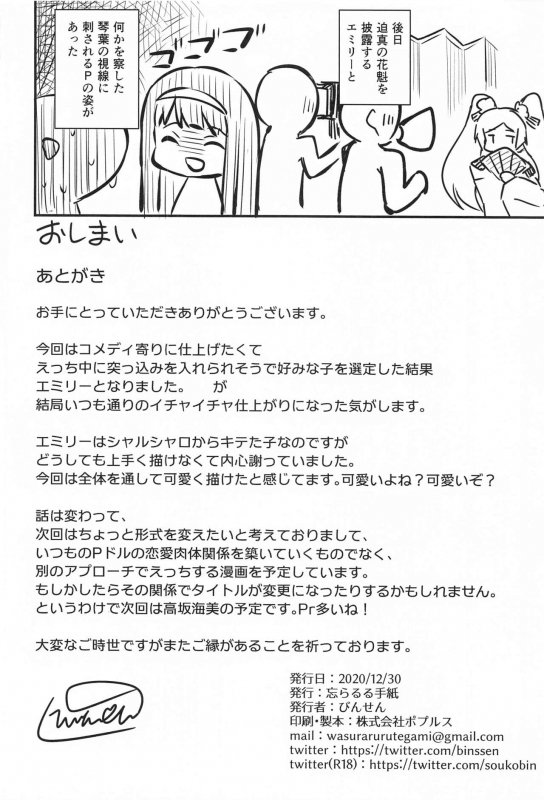 後日
迫真の花魁を
披露する
エミリーと
何かを察した
琴葉の視線に
刺されるPの姿が
あった
ゴゴゴゴ
おしまい
あとがき
お手にとっていただきありがとうございます。
今回はコメディ寄りに仕上げたくて
えっち中に突っ込みを入れられそうで好みな子を選定した結果
エミリーとなりました。　が
結局いつも通りのイチャイチャ仕上がりになった気がします。
エミリーはシャルシャロからキテた子なのですが
どうしても上手く描けなくて内心謝っていました。
今回は全体を通して可愛く描けたと感じてます。可愛いよね？可愛いぞ？
話は変わって、
次回はちょっと形式を変えたいと考えておりまして、
いつものPドルの恋愛肉体関係を築いていくものでなく、
別のアプローチでえっちする漫画を予定しています。
もしかしたらその関係でタイトルが変更になったりするかもしれません。
というわけで次回は高坂海美の予定です。Pr多いね！
大変なご時世ですがまたご縁があることを祈っております。
発行日：2020/12/30
発行：忘らるる手紙
発行者：びんせん
印刷・製本：株式会社ポプルス
mail：wasurarurutegami@gmail.com
twitter：https://twitter.com/binssen
twitter(R18)：https://twitter.com/soukobin